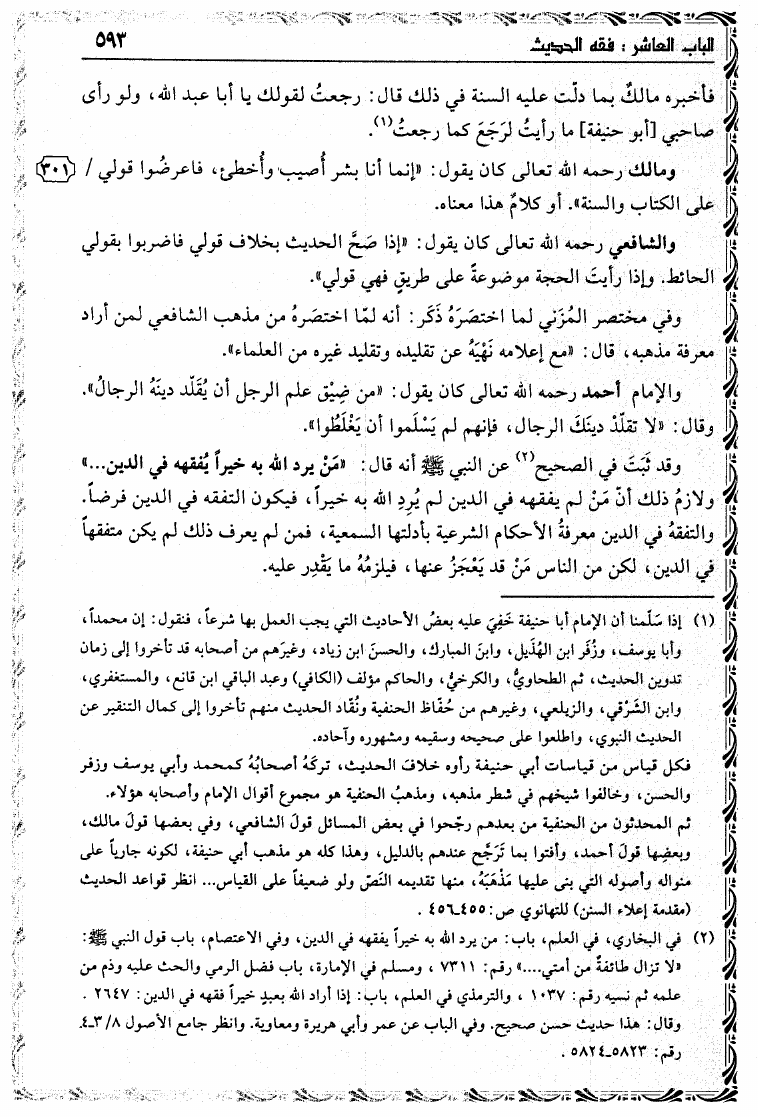 الباب العاشر : فقه الحديث
٥٩٣
فأخبره مالكٌ بما دلّت عليه السنة في ذلك قال: رجعتُ لقولك يا أبا عبد الله، ولو رأى
صاحبي [أبو حنيفة] ما رأيتُ لرَجَعَ كما رجعتُ(١).
ومالك رحمه الله تعالى كان يقول: «إنما أنا بشر أُصيب وأُخطئ، فاعرضُوا قولي /
٣٠١
على الكتاب والسنة». أو كلامٌ هذا معناه.
والشافعي رحمه الله تعالى كان يقول: «إذا صَحَّ الحديث بخلاف قولي فاضربوا بقولي
الحائط. وإذا رأيتَ الحجة موضوعةً على طريقٍ فهي قولي».
وفي مختصر المُزَني لما اختصَرَهُ ذَكَر: أنه لمّا اختصَرَهُ من مذهب الشافعي لمن أراد
معرفة مذهبه، قال: «مع إعلامه نَهْيَهُ عن تقليده وتقليد غيره من العلماء».
والإمام أحمد رحمه الله تعالى كان يقول: «من ضِيْق علم الرجل أن يُقَلّد دينَهُ الرجالُ».
وقال: «لا تقلّدْ دينَكَ الرجال، فإنهم لم يَسْلَموا أن يَغْلَطُوا».
وقد ثبَتَ في الصحيح(٢) عن النبي ﷺ أنه قال: «مَنْ يرد الله به خيراً يُفقهه في الدين...»
ولازمُ ذلك أنّ مَنْ لم يفقهه في الدين لم يُرِدِ الله به خيراً، فيكون التفقه في الدين فرضاً.
والتفقهُ في الدين معرفةُ الأحكام الشرعية بأدلتها السمعية، فمن لم يعرف ذلك لم يكن متفقهاً
في الدين، لكن من الناس مَنْ قد يَعْجَزُ عنها، فيلزمُهُ ما يَقْدِر عليه.
(١) إذا سَلّمنا أن الإمام أبا حنيفة خَفِيَ عليه بعضُ الأحاديث التي يجب العمل بها شرعاً، فنقول: إن محمداً،
وأبا يوسف، وزُفَر ابن الهُذَيل، وابنَ المبارك، والحسنَ ابن زياد، وغيرَهم من أصحابه قد تأخروا إلى زمان
تدوين الحديث، ثم الطحاويُّ، والكرخيُّ، والحاكم مؤلف (الكافي) وعبد الباقي ابن قانع، والمستغفري،
وابن الشَرْقي، والزيلعي، وغيرهم من حُفّاظ الحنفية ونُقّاد الحديث منهم تأخروا إلى كمال التنقير عن
الحديث النبوي، واطلعوا على صحيحه وسقيمه ومشهوره وآحاده.
فكل قياس من قياسات أبي حنيفة رأوه خلافَ الحديث، تركهُ أصحابُهُ كمحمد وأبي يوسف وزفر
والحسن، وخالفوا شيخهم في شطر مذهبه، ومذهبُ الحنفية هو مجموع أقوال الإمام وأصحابه هؤلاء.
ثم المحدثون من الحنفية من بعدهم رجّحوا في بعض المسائل قولَ الشافعي، وفي بعضها قولَ مالك،
وبعضِها قولَ أحمد، وأفتوا بما تَرَجَّح عندهم بالدليل، وهذا كله هو مذهب أبي حنيفة، لكونه جارياً على
منواله وأصوله التي بنى عليها مَذْهَبَهُ، منها تقديمه النَصّ ولو ضعيفاً على القياس... انظر قواعد الحديث
(مقدمة إعلاء السنن) للتهانوي ص: ٤٥٥ـ٤٥٦ .
(٢) في البخاري، في العلم، باب: من يرد الله به خيراً يفقهه في الدين، وفي الاعتصام، باب قول النبي ﷺ:
«لا تزال طائفةٌ من أمتي....» رقم: ٧٣١١ ، ومسلم في الإمارة، باب فضل الرمي والحث عليه وذم من
علمه ثم نسيه رقم: ١٠٣٧ ، والترمذي في العلم، باب: إذا أراد الله بعبدٍ خيراً فقهه في الدين: ٢٦٤٧ .
وقال: هذا حديث حسن صحيح. وفي الباب عن عمر وأبي هريرة ومعاوية. وانظر جامع الأصول ٣/٨ـ٤
رقم: ٥٨٢٣ـ٥٨٢٤ .